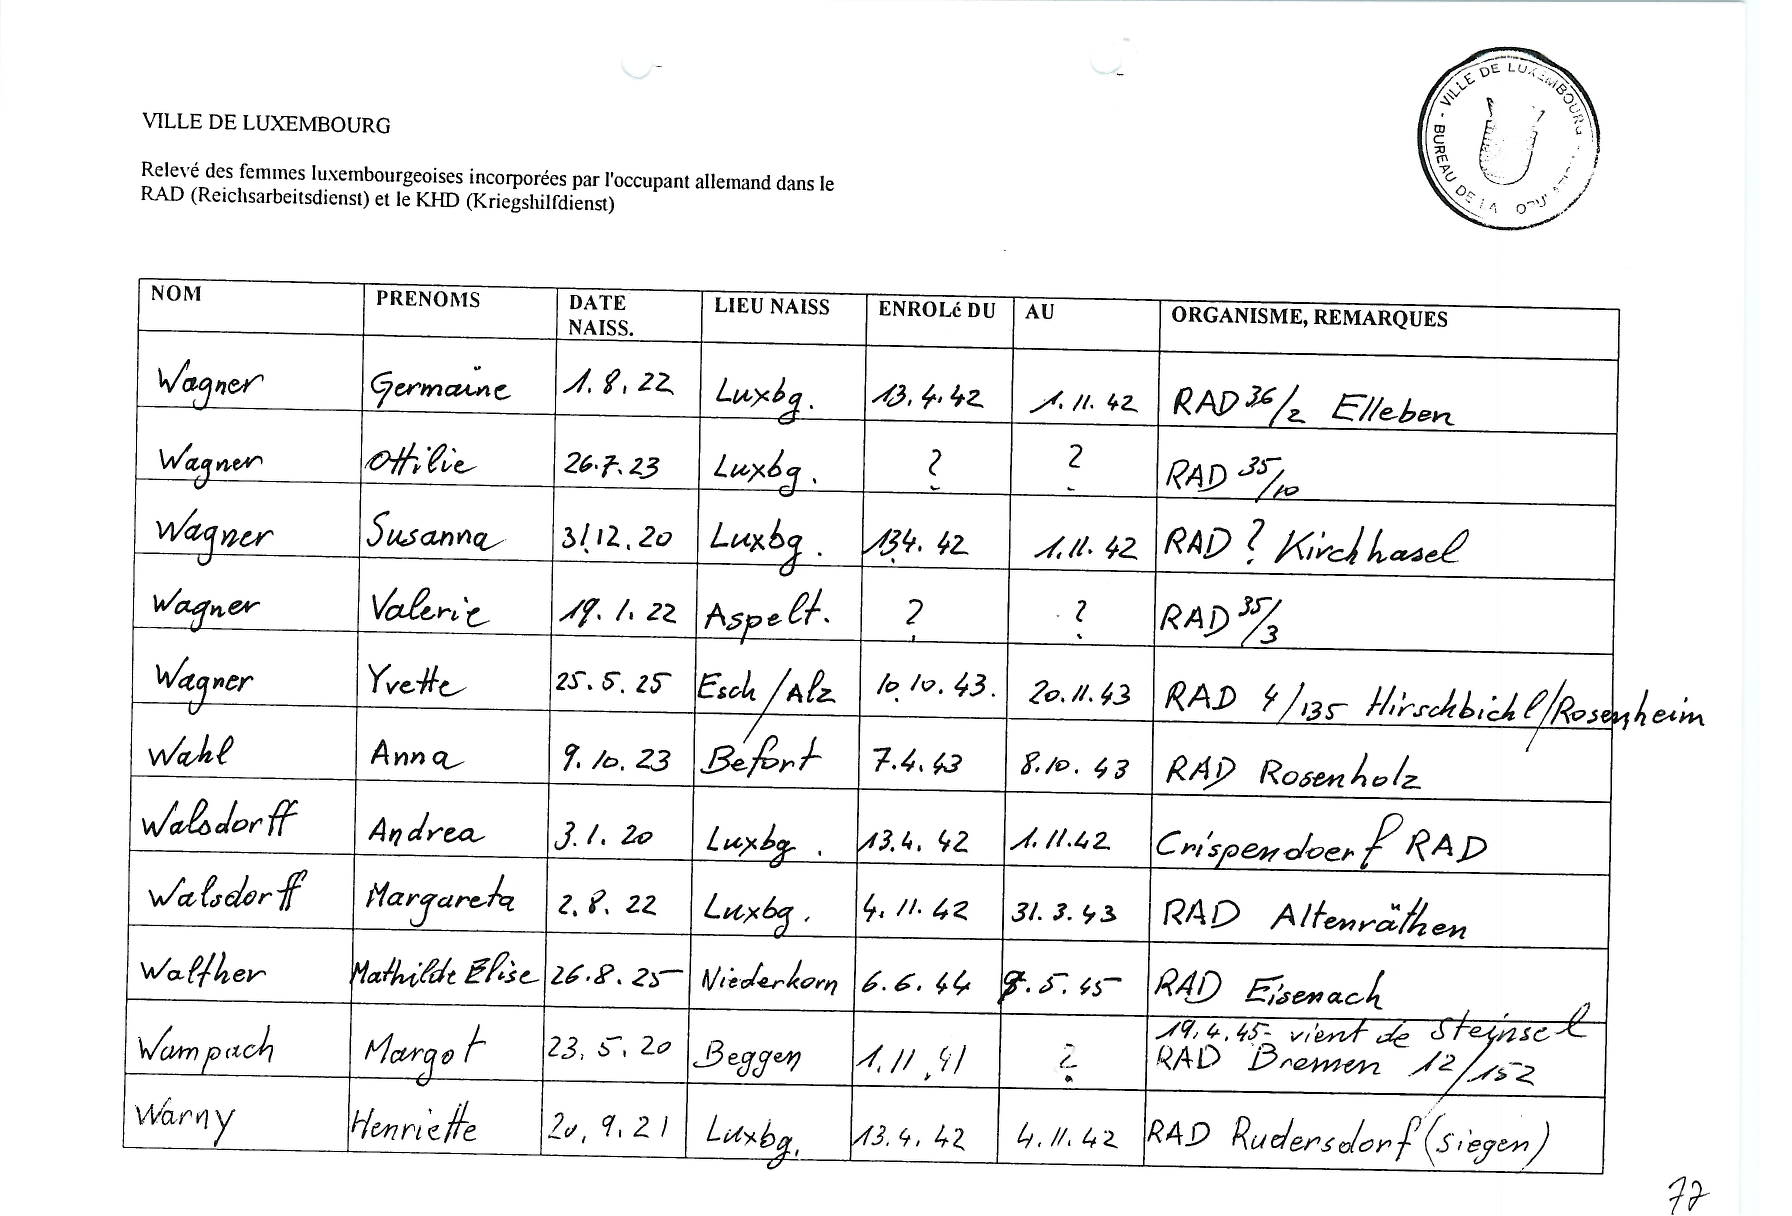 VILLE DE LUXEMBOURG
VILLE DE LUXEMBOURG
BUREAU DE LA
Relevé des femmes luxembourgeoises incorporées par l'occupant allemand dans le
RAD (Reichsarbeitsdienst) et le KHD (Kriegshilfdienst)
NOM PRENOMS DATE NAISS. LIEU NAISS ENROLé DU AU ORGANISME, REMARQUES
Wagner Germaine 1.8.22 Luxbg. 13.4.42 1.11.42 RAD 36/2 Elleben
Wagner Ottilie 26.7.23 Luxbg. ? ? RAD 35/10
Wagner Susanna 31.12.20 Luxbg. 13.4.42 1.11.42 RAD ? Kirchhasel
Wagner Valerie 19.1.22 Aspelt. ? ? RAD 35/3
Wagner Yvette 25.5.25 Esch/Alz 10.10.43. 20.11.43 RAD 4/135 Hirschbichl/Rosenheim
Wahl Anna 9.10.23 Befort 7.4.43 8.10.43 RAD Rosenholz
Walsdorff Andrea 3.1.20 Luxbg. 13.4.42 1.11.42 Crispendoerf RAD
Walsdorff Margareta 2.8.22 Luxbg. 4.11.42 31.3.43 RAD Altenräthen
Walther Mathilde Elise 26.8.25 Niederkorn 6.6.44 .5.45 RAD Eisenach
19.4.45- vient de Steinsel
Wampach Margot 23.5.20 Beggen 1.11.41 ? RAD Bremen 12/152
Warny Henriette 20.9.21 Luxbg. 13.4.42 4.11.42 RAD Rudersdorf (Siegen)
77